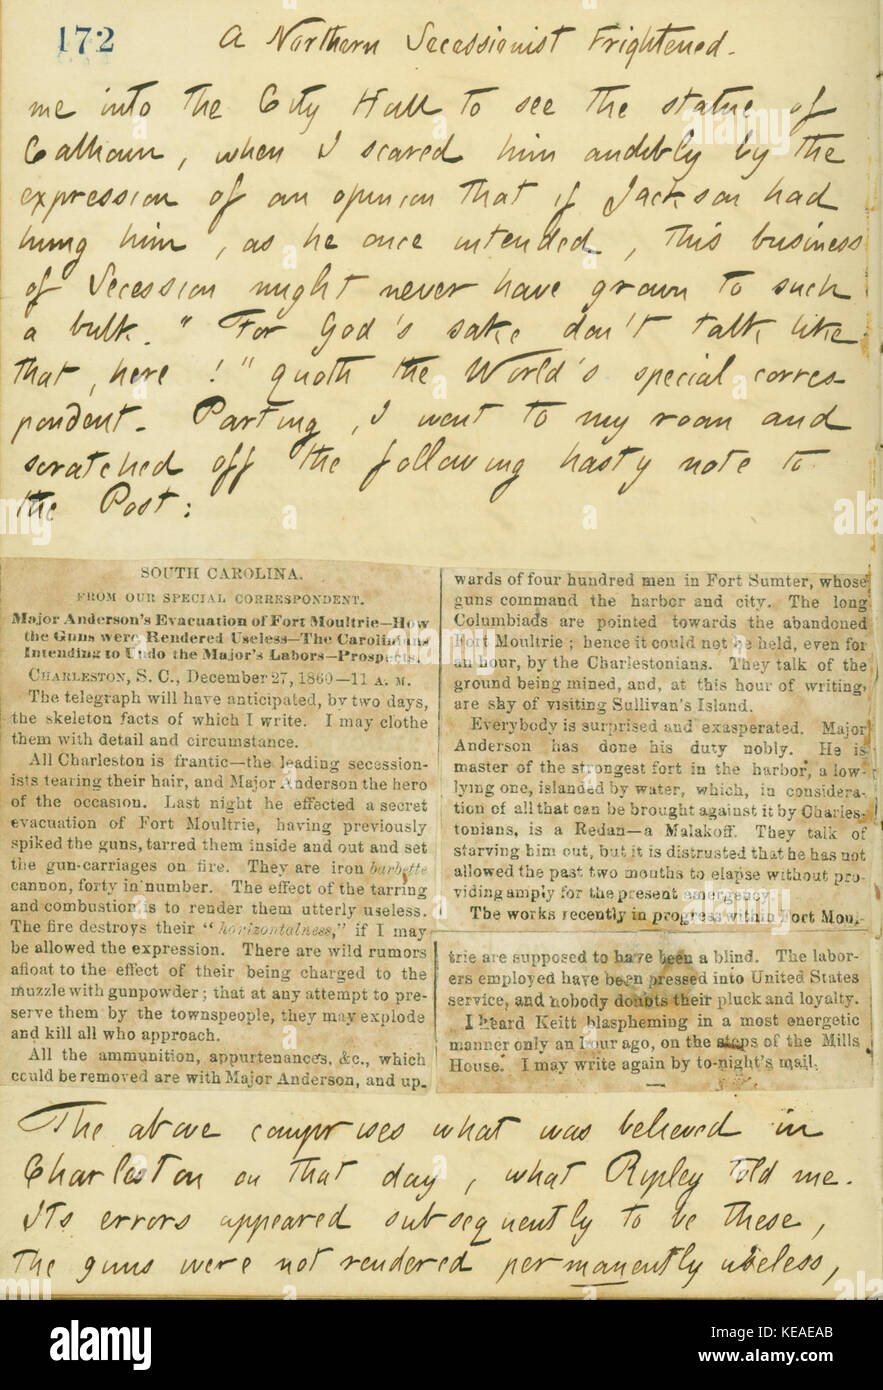 172
A Northern Secessionist Frightened.
me into the City Hall to see the statue of
Calhoun, when I scared him audibly by the
expression of an opinion that if Jackson had
hung him, as he once intended, this business
of Secession might never have grown to such
a bulk. "For God's sake don't talk like
that, here!" quoth the World's special corres-
pondent. Parting, I went to my room and
scratched off the following hasty note to
the Post:
SOUTH CAROLINA.
FROM OUR SPECIAL CORRESPONDENT.
Major Anderson's Evacuation of Fort Moultrie—How
the Guns were Rendered Useless—The Carolinians
Intending to Undo the Major's Labors—Prospects.
CHARLESTON, S. C., December 27, 1860—11 A. M.
The telegraph will have anticipated, by two days,
the skeleton facts of which I write. I may clothe
them with detail and circumstance.
All Charleston is frantic—the leading secession-
ists tearing their hair, and Major Anderson the hero
of the occasion. Last night he effected a secret
evacuation of Fort Moultrie, having previously
spiked the guns, tarred them inside and out and set
the gun-carriages on fire. They are iron barbette
cannon, forty in number. The effect of the tarring
and combustion is to render them utterly useless.
The fire destroys their "horizontalness," if I may
be allowed the expression. There are wild rumors
afloat to the effect of their being charged to the
muzzle with gunpowder; that at any attempt to pre-
serve them by the townspeople, they may explode
and kill all who approach.
All the ammunition, appurtenances, &c., which
could be removed are with Major Anderson, and up-
wards of four hundred men in Fort Sumter, whose
guns command the harbor and city. The long
Columbiads are pointed towards the abandoned
Fort Moultrie; hence it could not be held, even for
an hour, by the Charlestonians. They talk of the
ground being mined, and, at this hour of writing,
are shy of visiting Sullivan's Island.
Everybody is surprised and exasperated. Major
Anderson has done his duty nobly. He is
master of the strongest fort in the harbor, a low-
lying one, islanded by water, which, in considera-
tion of all that can be brought against it by Charles-
tonians, is a Redan—a Malakoff. They talk of
starving him out, but it is distrusted that he has not
allowed the past two months to elapse without pro-
viding amply for the present emergency.
The works recently in progress within Fort Moul-
trie are supposed to have been a blind. The labor-
ers employed have been pressed into United States
service, and nobody doubts their pluck and loyalty.
I heard Keitt blaspheming in a most energetic
manner only an hour ago, on the steps of the Mills
House. I may write again by to-night's mail.
The above comprises what was believed in
Charleston on that day, what Ripley told me.
Its errors appeared subsequently to be these,
the guns were not rendered permanently useless,
alamy
alamy stock photo
KEAEAB
www.alamy.com